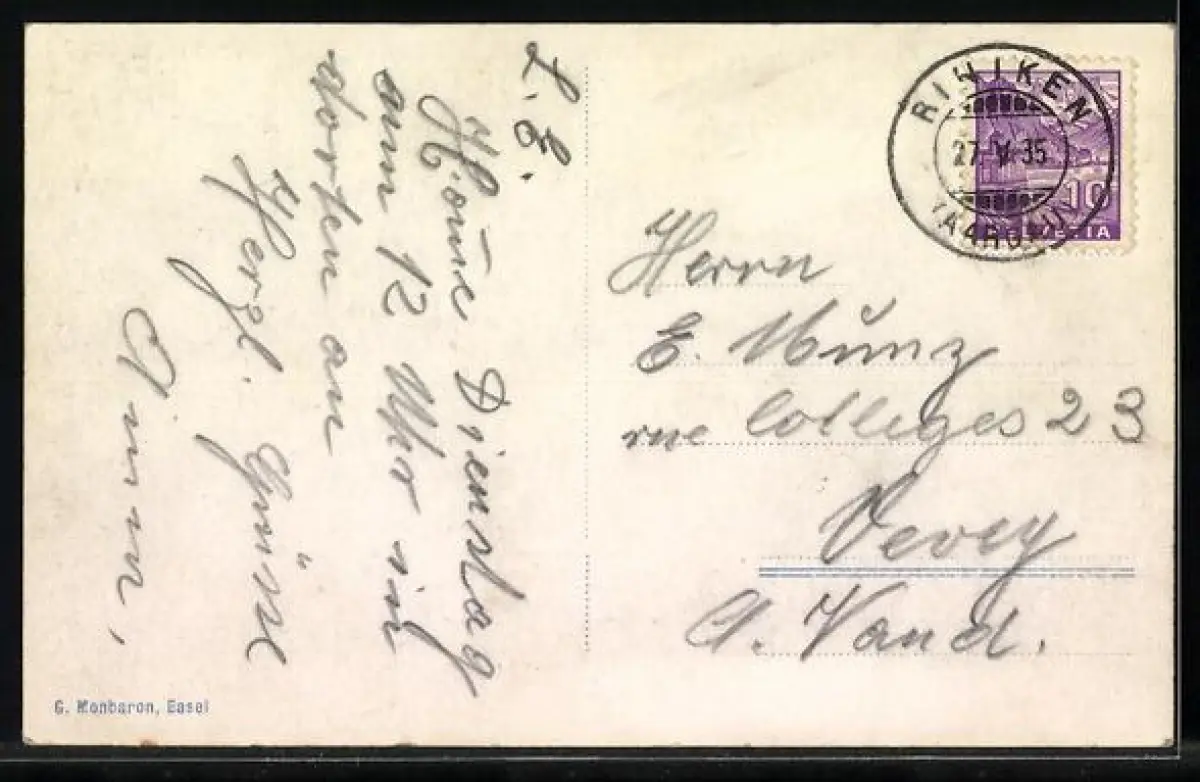 L. E.
Home Dienstag
um 12 Uhr in
dorten an
Herzl. Grüsse
RINIKEN
27.V.35
(AARGAU)
10
HELVETIA
Herrn
E. Münz
rue Colleges 23
Vevey
Ct. Vaud.
G. Monbaron, Basel